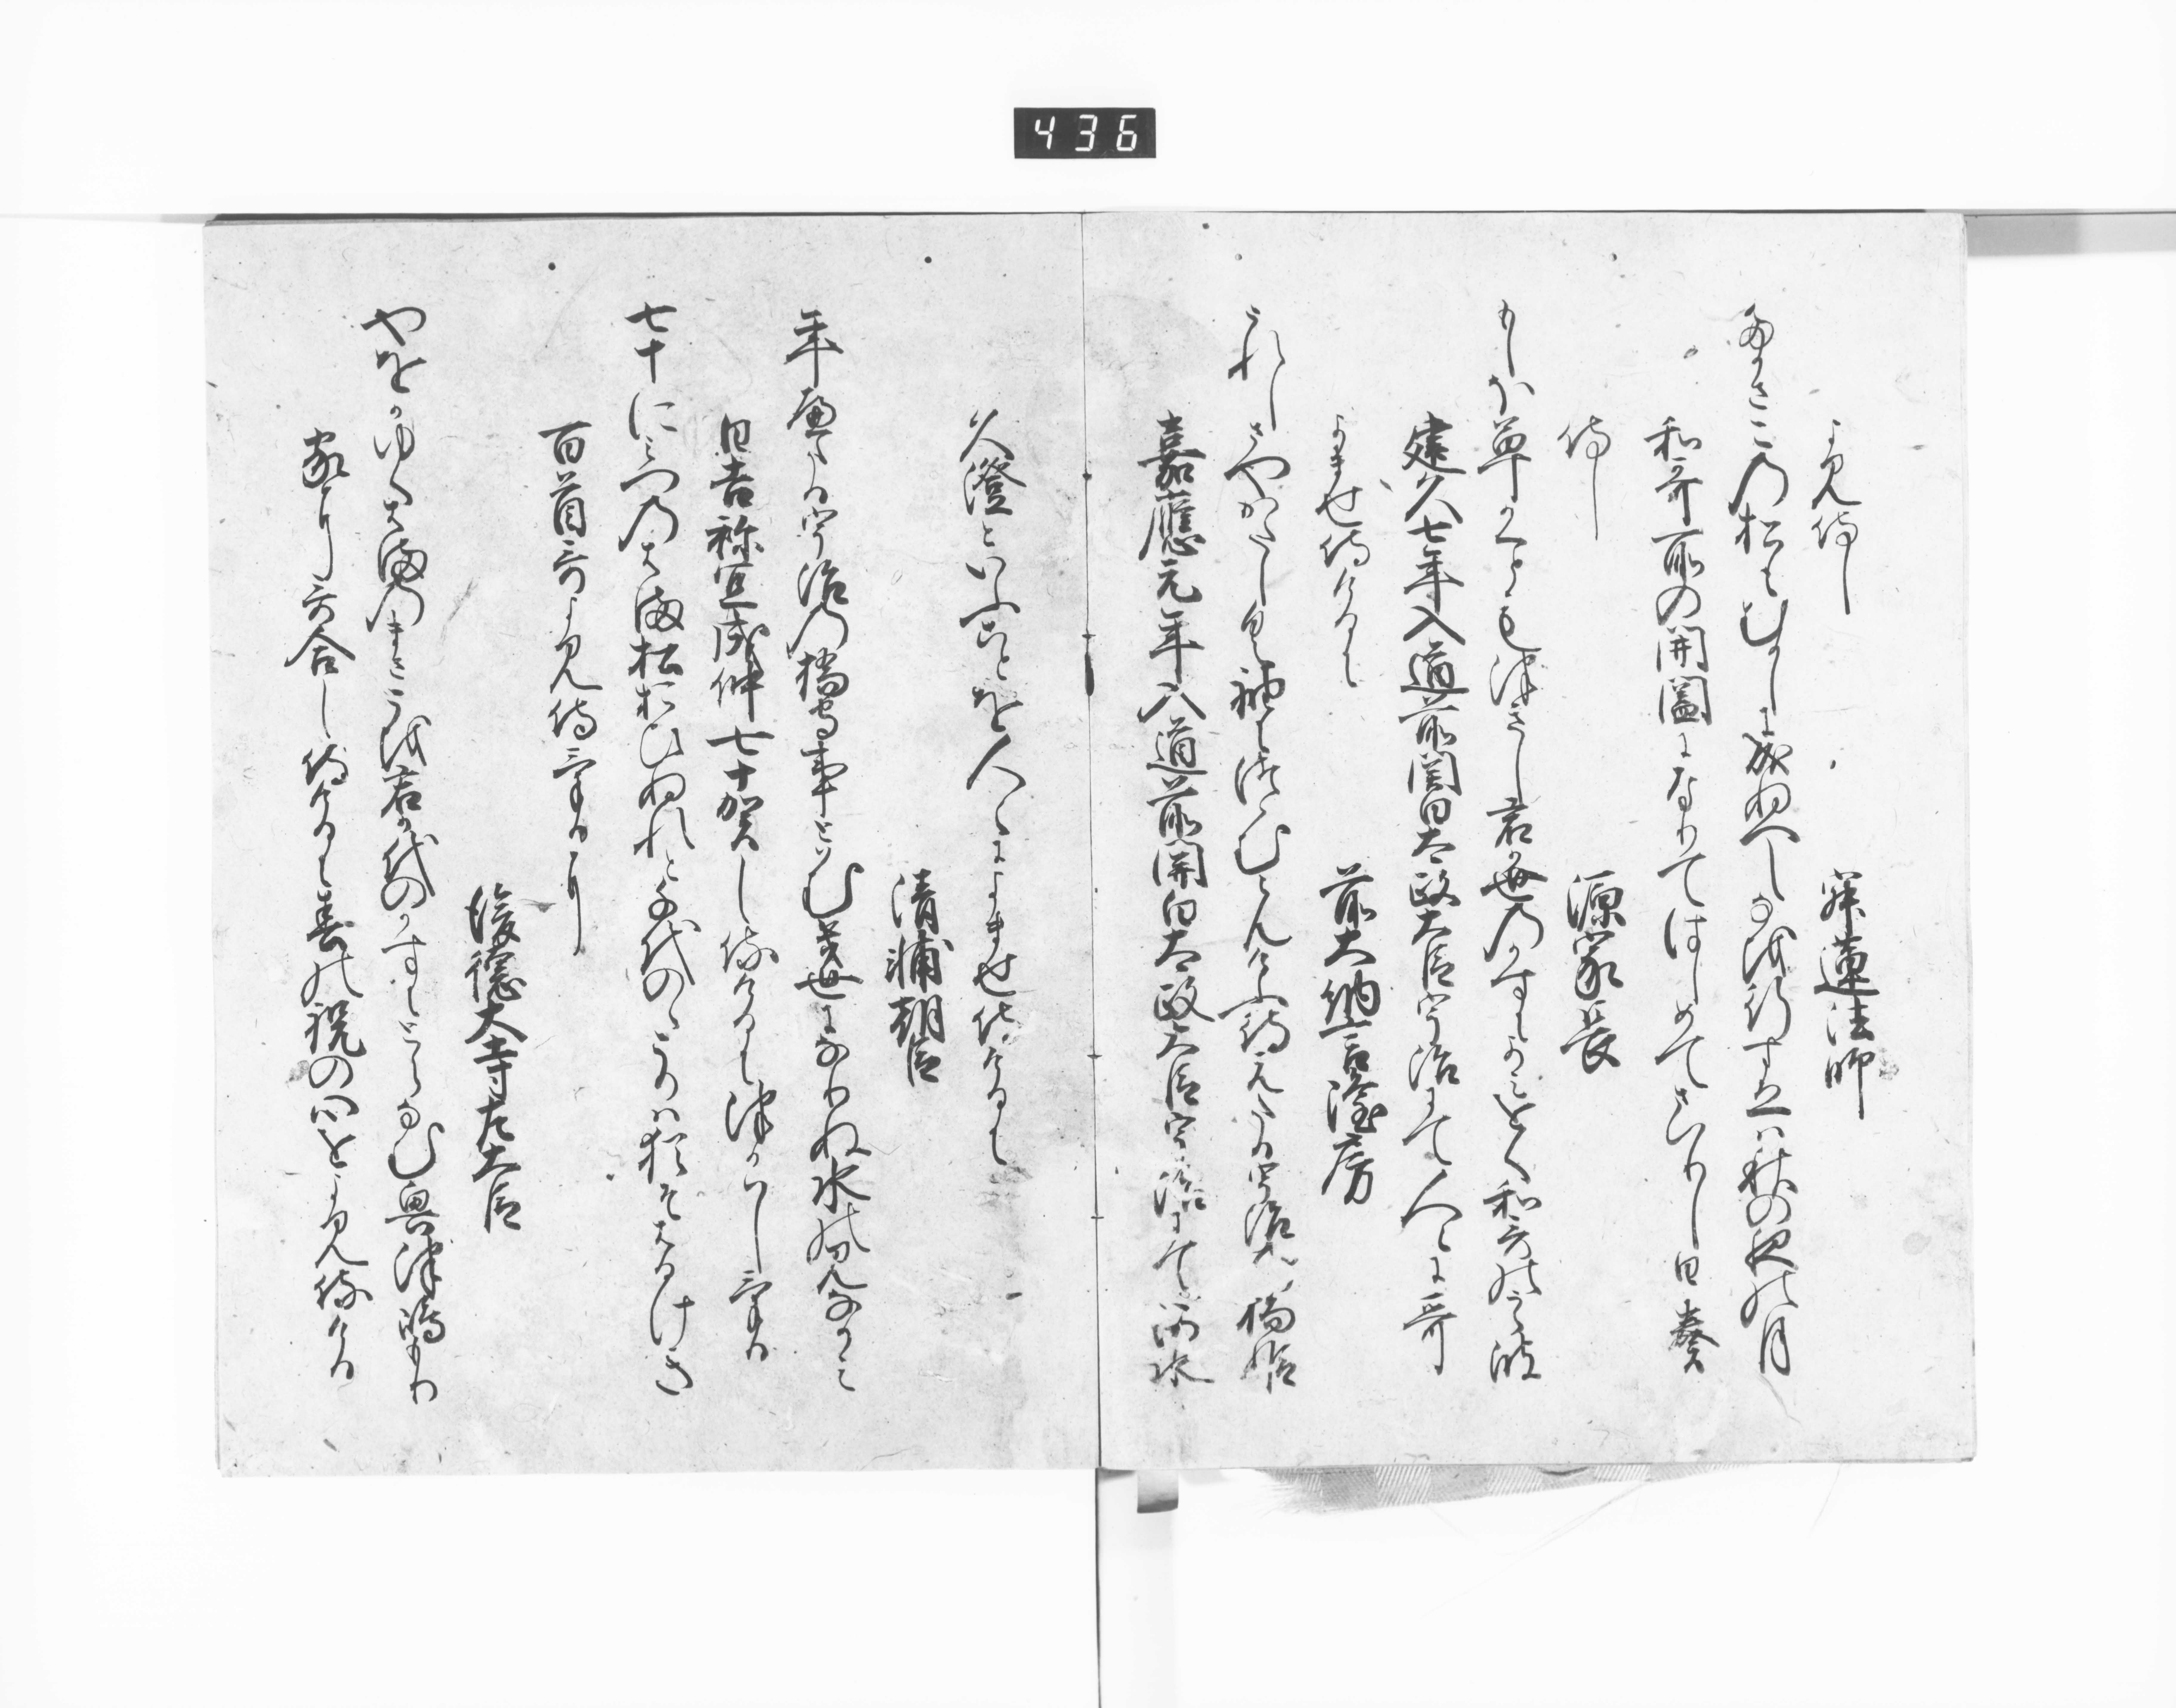 436
よみ侍し
寂蓮法師
たかさこの松もむかしに成ぬへしなを行すゑは秋の夜の月
和哥所の開闔になりてはしめてまいりし日奏
侍し
源家長
もしほ草かくともつきし君か世のかすによみをく和哥のうら波
建久七年入道前関白太政大臣宇治にて人々に哥
よませ侍けるに
前大納言隆房
うれしさやかたしく袖につゝむらんけふ待えたる宇治の橋姫
嘉應元年入道前関白太政大臣宇治にて河水
久澄といふことを人々によませ侍けるに
清輔朝臣
年へたる宇治の橋守事とはむ幾世になりぬ水のみなかみ
日吉祢宜成仲七十賀し侍けるにつかはしける
七十にみつのはま松おひぬれと千代のゝこりは猶そはるけき
百首哥よみ侍けるに
後徳大寺左大臣
やをかゆくはまのまさこを君か代のかすにとらなむ奥津嶋もり
家に哥合し侍けるに春の祝の心をよみ侍ける